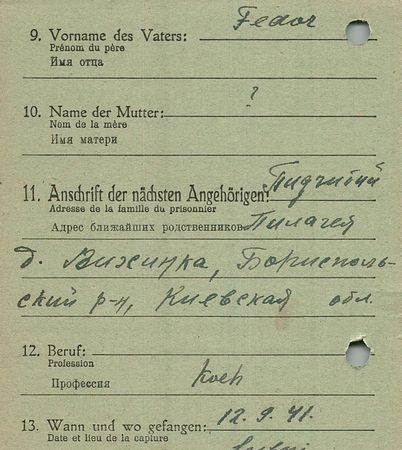 Fedor
9. Vorname des Vaters:
Prénom du père
Имя отца
?
10. Name der Mutter:
Nom de la mère
Имя матери
11. Anschrift der nächsten Angehörigen:
Adresse de la famille du prisonnier
Адрес ближайших родственников Пилагея
д. Вихинка, Бориcполь-
ский р-н, Киевская обл.
12. Beruf:
Profession
Профессия Koch
13. Wann und wo gefangen: 12.9.41.
Date et lieu de la capture